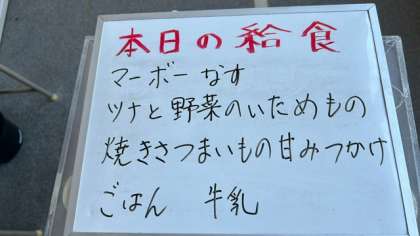 本日の給食
マーボーなす
ツナと野菜のいためもの
焼きさつまいもの甘みつかけ
ごはん 牛乳